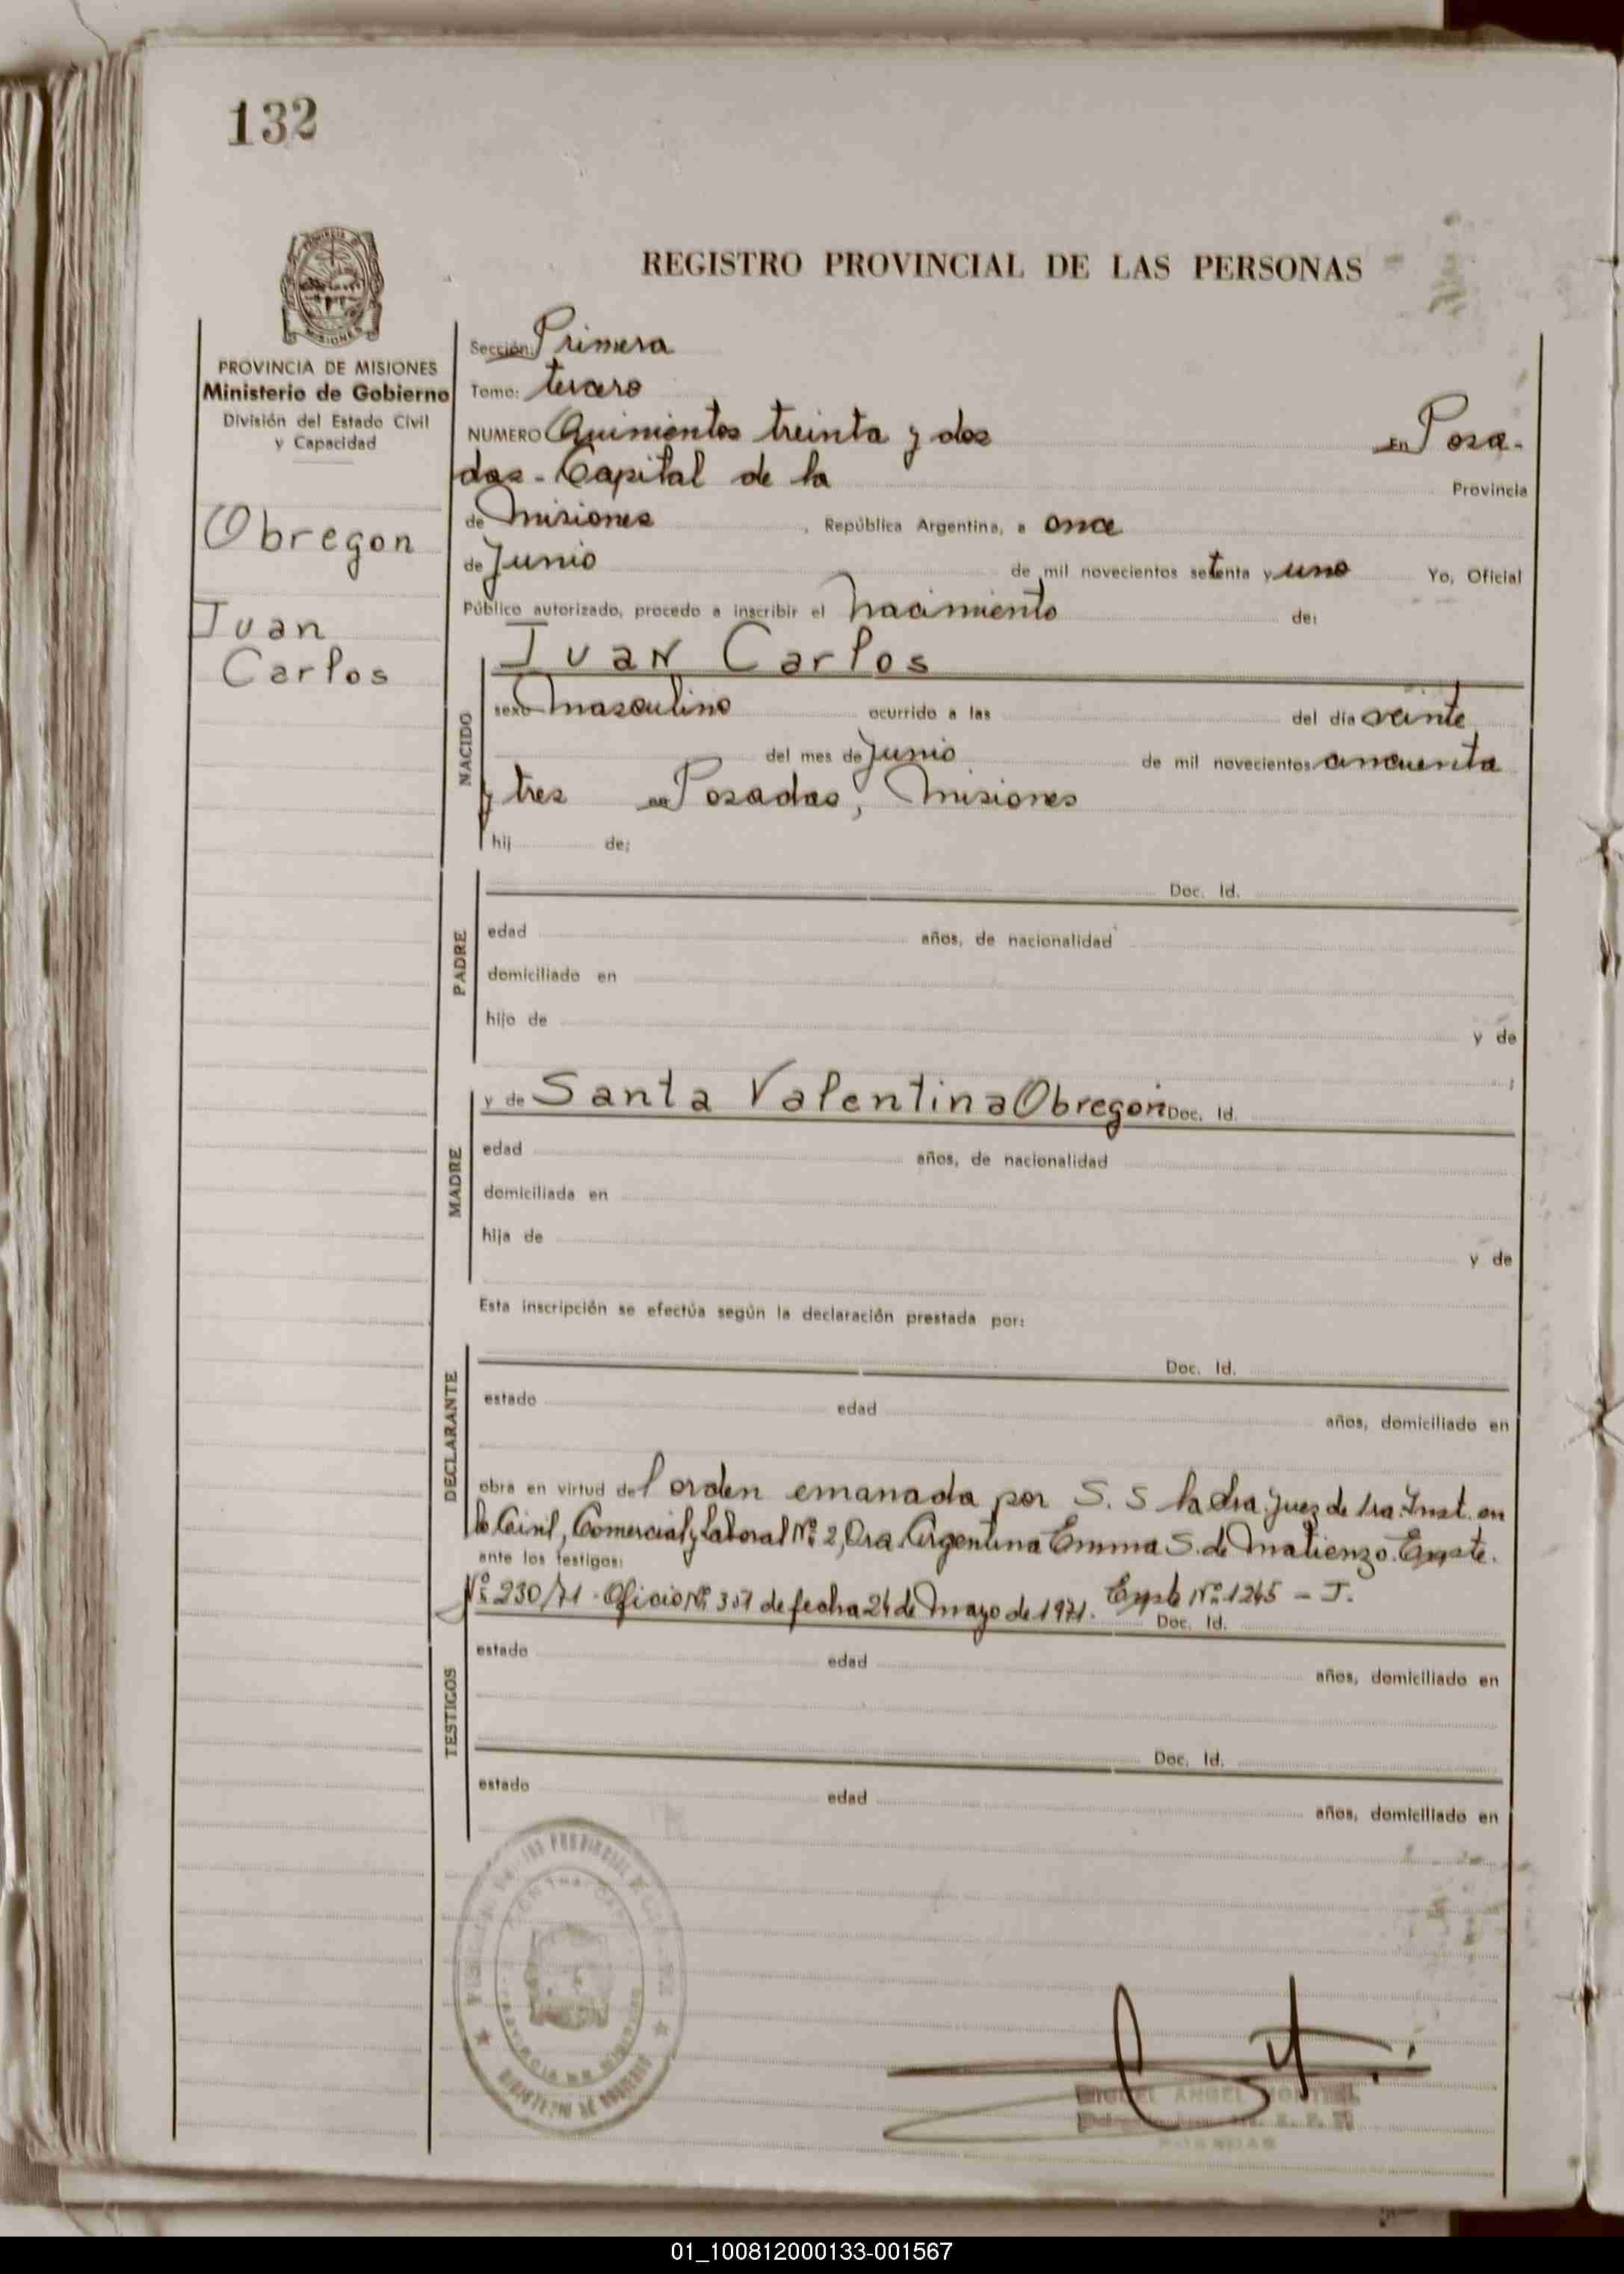 132
PROVINCIA DE MISIONES
Ministerio de Gobierno
División del Estado Civil
y Capacidad
Obregon
Juan
Carlos
REGISTRO PROVINCIAL DE LAS PERSONAS
Sección: Primera
Tomo: tercero
NUMERO Quinientos treinta y dos En Posa-
das - Capital de la Provincia
de Misiones, República Argentina, a once
de Junio de mil novecientos setenta y uno Yo, Oficial
Público autorizado, procedo a inscribir el Nacimiento de:
Juan Carlos
NACIDO
sexo Masculino ocurrido a las del día veinte
del mes de Junio de mil novecientos cincuenta
y tres en Posadas, Misiones
hij de:
PADRE
Doc. Id.
edad años, de nacionalidad
domiciliado en
hijo de y de
;
MADRE
y de Santa Valentina Obregon Doc. Id.
edad años, de nacionalidad
domiciliada en
hija de y de
Esta inscripción se efectúa según la declaración prestada por:
DECLARANTE
Doc. Id.
estado edad años, domiciliado en
obra en virtud del orden emanada por S. S la dra Juez de 1ra. Inst. en
lo Civil, Comercial y Laboral Nº 2, Dra. Argentina Emma S. de Matienzo. Expte.
ante los testigos:
Nº 230/71 - Oficio Nº de fecha 24 de Mayo de 1971. Expte Nº 1245 - J.
Doc. Id.
TESTIGOS
estado edad años, domiciliado en
Doc. Id.
estado edad años, domiciliado en
MIGUEL ANGEL
POSADAS
01_100812000133-001567